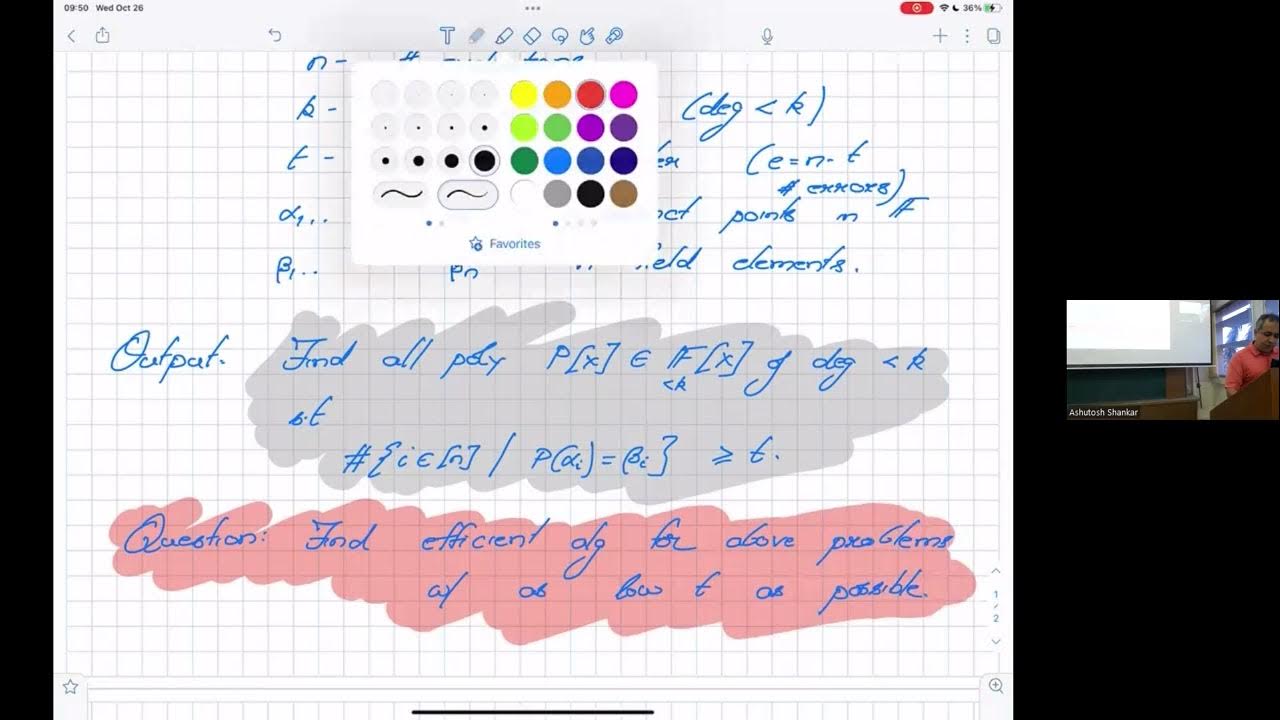 09:50 Wed Oct 26
36%
n - #
k - (deg < k)
t - (e = n - t
# errors)
α₁.. points in F
β₁.. βn elements.
Favorites
Output: Find all poly P[x] ∈ F<k[x] of deg < k
s.t
#{i ∈ [n] / P(αi) = βi} ≥ t.
Question: Find efficient alg for above problems
w/ as low t as possible.
1
/
2
Ashutosh Shankar